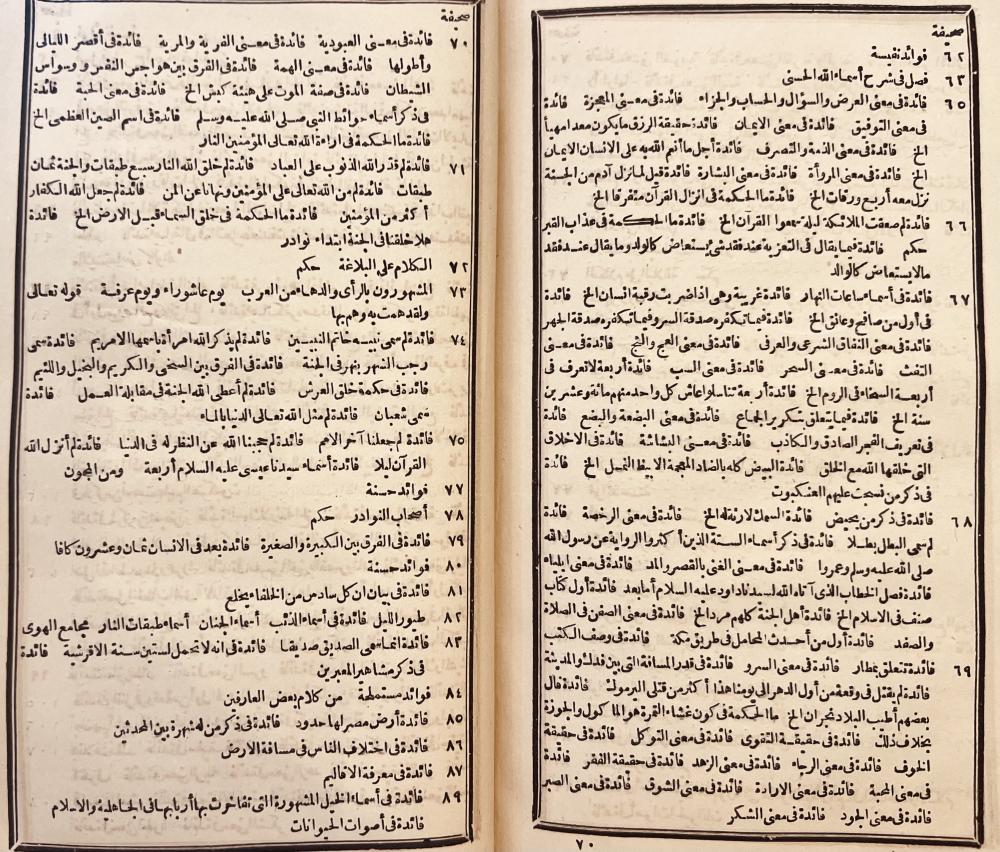 صحيفة
٦٢ فوائد نفيسة
٦٣ فصل فى شرح أسماء الله الحسنى
٦٥ فائدة فى معنى العرض والسؤال والحساب والجزاء فائدة فى معنى المعجزة فائدة
فى معنى التوفيق فائدة فى معنى الايمان فائدة حقيقة الرزق ما يكون معدا مهيأ
الخ فائدة فى معنى الذمة والتصرف فائدة أجل ما أنعم الله به على الانسان الايمان
الخ فائدة فى معنى المروأة فائدة فى معنى البشارة فائدة قيل لما نزل آدم من الجنة
نزل معه أربع ورقات الخ فائدة ما الحكمة فى انزال القرآن متفرقا الخ
٦٦ فائدة لم صعقت الملائكة ليلة سمعوا القرآن الخ فائدة ما الحكمة فى عذاب القبر
حكم فائدة فيما يقال فى التعزية عند فقد شئ يستعاض كالولد وما يقال عند فقد
مالا يستعاض كالوالد
٦٧ فائدة فى أسماء ساعات النهار فائدة غريبة وهى اذا ضربت رقبة انسان الخ فائدة
فى أول من صافح وعانق الخ فائدة فيما تكفره صدقة السر وفيما تكفره صدقة الجهر
فائدة فى معنى النفاق الشرعى والعرفى فائدة فى معنى العج والثج فائدة فى معنى
التفث فائدة فى معنى السحر فائدة فى معنى السب فائدة أربعة لا تعرف فى
أربعة السخاء فى الروم الخ فائدة أربعة تناسلوا عاش كل واحد منهم مائة وعشرين
سنة الخ فائدة فيما يتعلق بتكرير الجماع فائدة فى معنى البضعة والبضع فائدة
فى تعريف الفجر الصادق والكاذب فائدة فى معنى البشاشة فائدة فى الاخلاق
التى خلقها الله مع الخلق فائدة البيض كله بالضاد المعجمة الا بيظ النمل الخ فائدة
فى ذكر من نسجت عليهم العنكبوت
٦٨ فائدة فى ذكر من يحيض فائدة السمك لا رئة له الخ فائدة فى معنى الرخصة فائدة
لم سمى البطل بطلا فائدة فى ذكر أسماء الستة الذين أكثروا الرواية عن رسول الله
صلى الله عليه وسلم وعمروا فائدة فى معنى الغنى بالقصر والمد فائدة فى معنى ايلياء
فائدة فصل الخطاب الذى آتاه الله لسيدنا داود عليه السلام أما بعد فائدة أول كتاب
صنف فى الاسلام الخ فائدة أهل الجنة كلهم مرد الخ فائدة فى معنى الصفن فى الصلاة
والصفد فائدة أول من أحدث المحامل فى طريق مكة فائدة فى وصف الكتب
٦٩ فائدة تتعلق بمطار فائدة فى معنى السرو فائدة فى قدر المسافة التى بين فدك والمدينة
فائدة لم يقتل فى وقعة من أول الدهر الى يومنا هذا أكثر من قتلى اليرموك فائدة قال
بعضهم أطيب البلاد نجران الخ ما الحكمة فى كون غشاء التمرة هو المأكول والجوزة
بخلاف ذلك فائدة فى حقيقة التقوى فائدة فى معنى التوكل فائدة فى حقيقة
الخوف فائدة فى معنى الرجاء فائدة فى معنى الزهد فائدة فى حقيقة الفقر فائدة
فى معنى المحبة فائدة فى معنى الارادة فائدة فى معنى الشوق فائدة فى معنى الصبر
فائدة فى معنى الجود فائدة فى معنى الشكر
٧٠
صحيفة
٧٠ فائدة فى معنى العبودية فائدة فى معنى الفرية والمرية فائدة فى أقصر الليالى
وأطولها فائدة فى معنى الهمة فائدة فى الفرق بين هواجس النفس ووسواس
الشيطان فائدة فى صفة الموت على هيئة كبش الخ فائدة فى معنى الحبة فائدة
فى ذكر أسماء حوائط النبى صلى الله عليه وسلم فائدة فى اسم الصين العظمى الخ
فائدة ما الحكمة فى اراءة الله تعالى المؤمنين النار
٧١ فائدة لم قدر الله الذنوب على العباد فائدة لم خلق الله النار سبع طبقات والجنة ثمان
طبقات فائدة لم من الله تعالى على المؤمنين ونهانا عن المن فائدة لم جعل الله الكفار
أكثر من المؤمنين فائدة ما الحكمة فى خلق السماء قبل الارض الخ فائدة
هلا خلقنا فى الجنة ابتداء نوادر
٧٢ الكلام على البلاغة حكم
٧٣ المشهورون بالرأى والدهاء من العرب يوم عاشوراء ويوم عرفة قوله تعالى
ولقد همت به وهم بها
٧٤ فائدة لم سمى نبيه خاتم النبيين فائدة لم يذكر الله امرأة باسمها الا مريم فائدة سمى
رجب الشهر بنهر فى الجنة فائدة فى الفرق بين السخى والكريم والبخيل واللئيم
فائدة فى حكمة خلق العرش فائدة لم أعطى الله الجنة فى مقابلة العمل فائدة
سمى شعبان فائدة لم مثل الله تعالى الدنيا بالماء
٧٥ فائدة لم جعلنا آخر الامم فائدة لم حجبنا الله عن النظر له فى الدنيا فائدة لم أنزل الله
القرآن ليلا فائدة أسماء سيدنا عيسى عليه السلام أربعة ومن المجون
٧٧ فوائد حسنة
٧٨ أصحاب النوادر حكم
٧٩ فائدة فى الفرق بين الكبيرة والصغيرة فائدة يعد فى الانسان ثمان وعشرون كافا
٨٠ فوائد حسنة
٨١ فائدة فى بيان ان كل سادس من الخلفاء يخلع
٨٢ طيور الليل فائدة فى أسماء الذئب أسماء الجنان أسماء طبقات النار مجامع الهوى
٨٣ فائدة انما سمى الصديق صديقا فائدة فى انه لا تحمل لستين سنة الا قرشية فائدة
فى ذكر مشاهير المعمرين
٨٤ فوائد مستملحة من كلام بعض العارفين
٨٥ فائدة أرض مصر لها حدود فائدة فى ذكر من له شهرة بين المحدثين
٨٦ فائدة فى اختلاف الناس فى مسافة الارض
٨٧ فائدة فى معرفة الاقاليم
٨٩ فائدة فى أسماء الخيل المشهورة التى تفاخرت بها أربابها فى الجاهلية والاسلام
فائدة فى أصوات الحيوانات